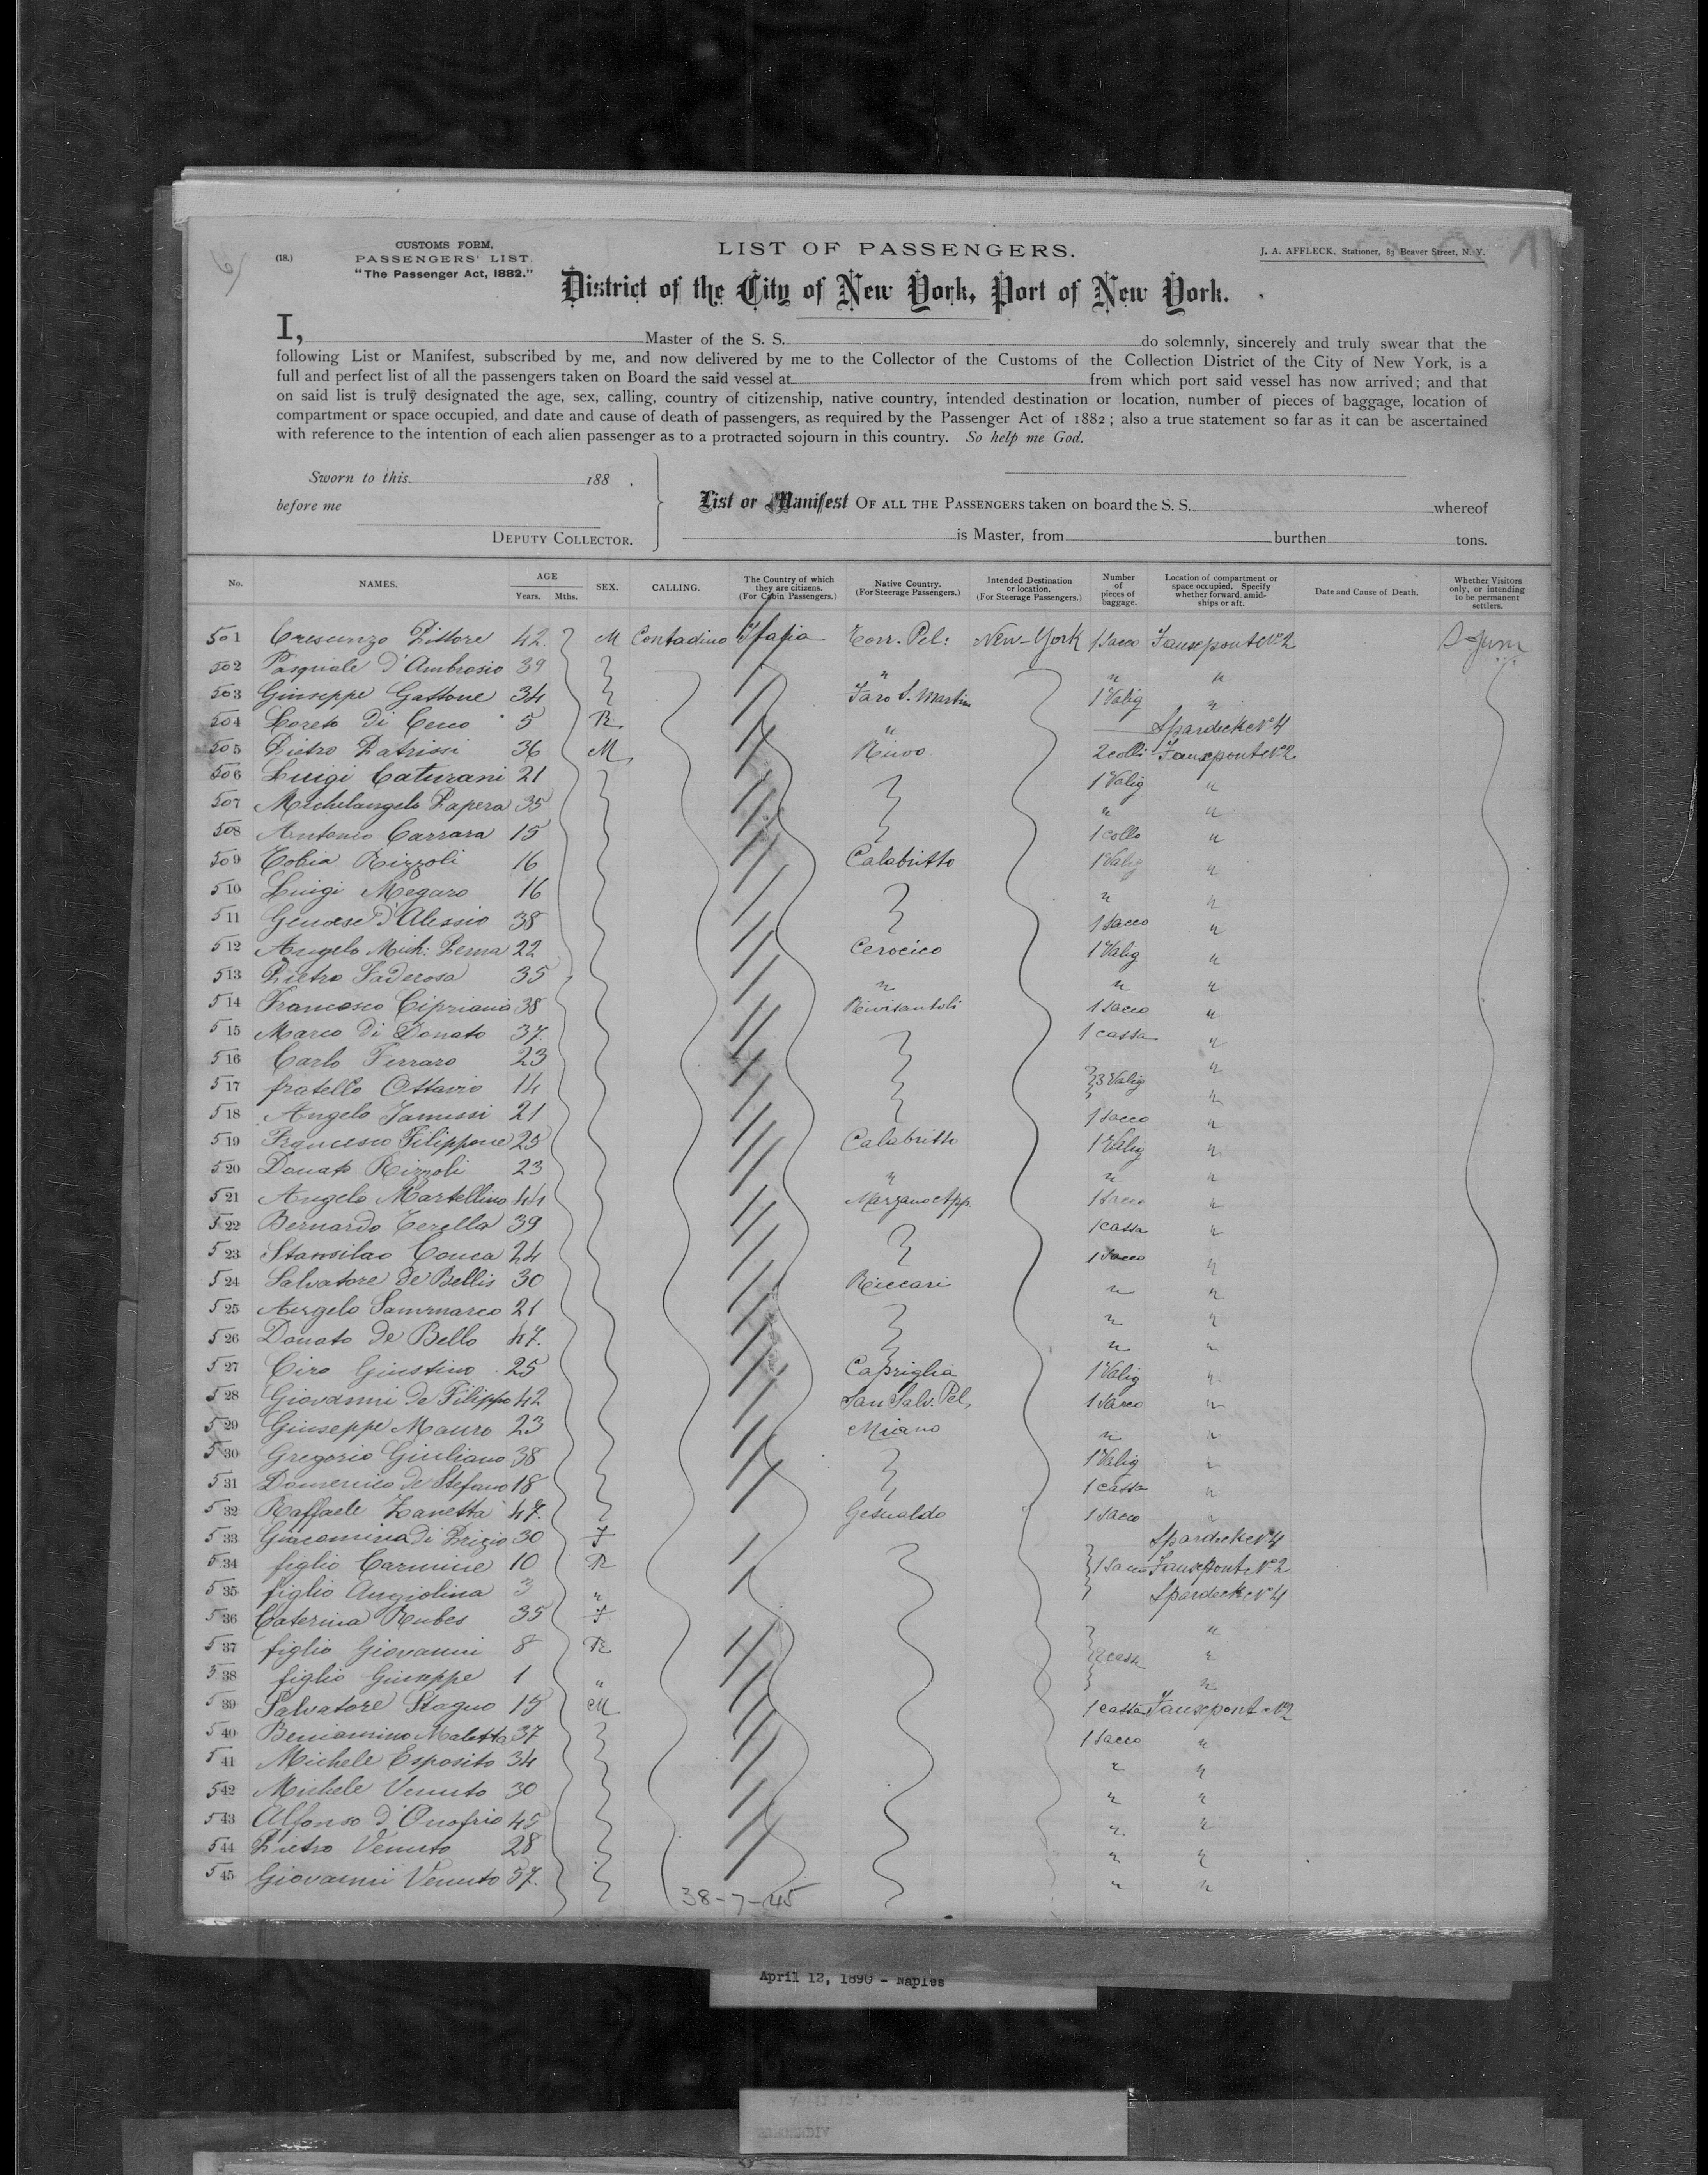 (18.)
CUSTOMS FORM.
PASSENGERS' LIST.
"The Passenger Act, 1882."
LIST OF PASSENGERS.
J. A. AFFLECK, Stationer, 83 Beaver Street, N. Y.
District of the City of New York, Port of New York.
I, Master of the S. S. do solemnly, sincerely and truly swear that the
following List or Manifest, subscribed by me, and now delivered by me to the Collector of the Customs of the Collection District of the City of New York, is a
full and perfect list of all the passengers taken on Board the said vessel at from which port said vessel has now arrived; and that
on said list is truly designated the age, sex, calling, country of citizenship, native country, intended destination or location, number of pieces of baggage, location of
compartment or space occupied, and date and cause of death of passengers, as required by the Passenger Act of 1882; also a true statement so far as it can be ascertained
with reference to the intention of each alien passenger as to a protracted sojourn in this country. So help me God.
Sworn to this 188 .
before me
DEPUTY COLLECTOR.
List or Manifest OF ALL THE PASSENGERS taken on board the S. S. whereof
is Master, from burthen tons.
No. NAMES. AGE Years. Mths. SEX. CALLING. The Country of which they are citizens. (For Cabin Passengers.) Native Country. (For Steerage Passengers.) Intended Destination or location. (For Steerage Passengers.) Number of pieces of baggage. Location of compartment or space occupied. Specify whether forward, amidships or aft. Date and Cause of Death. Whether Visitors only, or intending to be permanent settlers.
501 Crescenzo Pittore 42 M Contadino Italia Torr. Pel: New-York 1 Sacco Fauxpont No 2
502 Pasquale d'Ambrosio 39 " " "
503 Giuseppe Gastone 34 Faro S. Martin 1 Valig "
504 Loreto di Cecco 5 " Spardeck No 4
505 Pietro Patrissi 36 M Ruvo 2 colli Fauxpont No 2
506 Luigi Caturani 21 1 Valig "
507 Michelangelo Papera 35 " "
508 Antonio Carrara 15 1 collo "
509 Tobia Rizzoli 16 Calabritto 1 Valig "
510 Luigi Megaro 16 " "
511 Genoese d'Alessio 38 1 Sacco "
512 Angelo Mich: Perna 22 1 Valig "
513 Pietro Faderosa 35 " " "
514 Francesco Cipriano 38 1 sacco "
515 Marco di Donato 37 1 cassa "
516 Carlo Ferraro 23 "
517 fratello Ottavio 14 3 Valig "
518 Angelo 21 1 sacco "
519 Francesco Filippone 25 Calabritto 1 Valig "
520 Donato Rizzoli 23 " " "
521 Angelo Martellino 44 Marzano App. 1 Sacco "
522 Bernardo Cerella 39 1 cassa "
523 Stansilao Conca 24 1 Sacco "
524 Salvatore de Bellis 30 Biccari " "
525 Angelo Sammarco 21 " "
526 Donato de Bello 47 " "
527 Ciro Giustino 25 Capriglia 1 Valig "
528 Giovanni de Filippo 42 San Salv. Pel. 1 Sacco "
529 Giuseppe Mauro 23 Miano " "
530 Gregorio Giuliano 38 1 Valig "
531 Domenico de Stefano 18 1 cassa "
532 Raffaele Zanetta 47 Gesualdo 1 Sacco "
533 Giacomina di Prizio 30 F Spardeck No 4
534 figlio Carmine 10 1 Sacco Fauxpont No 2
535 figlio Angiolina 3 " Spardeck No 4
536 Caterina Rubes 35 F "
537 figlio Giovanni 8 2 casse "
538 figlio Giuseppe 1 " "
539 Salvatore Stagno 15 M 1 cassa Fauxpont No 2
540 Beniamino Maletta 37 1 Sacco "
541 Michele Esposito 34 " "
542 Michele Venuto 30 " "
543 Alfonso d'Onofrio 45 " "
544 Pietro Venuto 28 " "
545 Giovanni Venuto 37 " "
38-7-45
April 12, 1890 - Naples